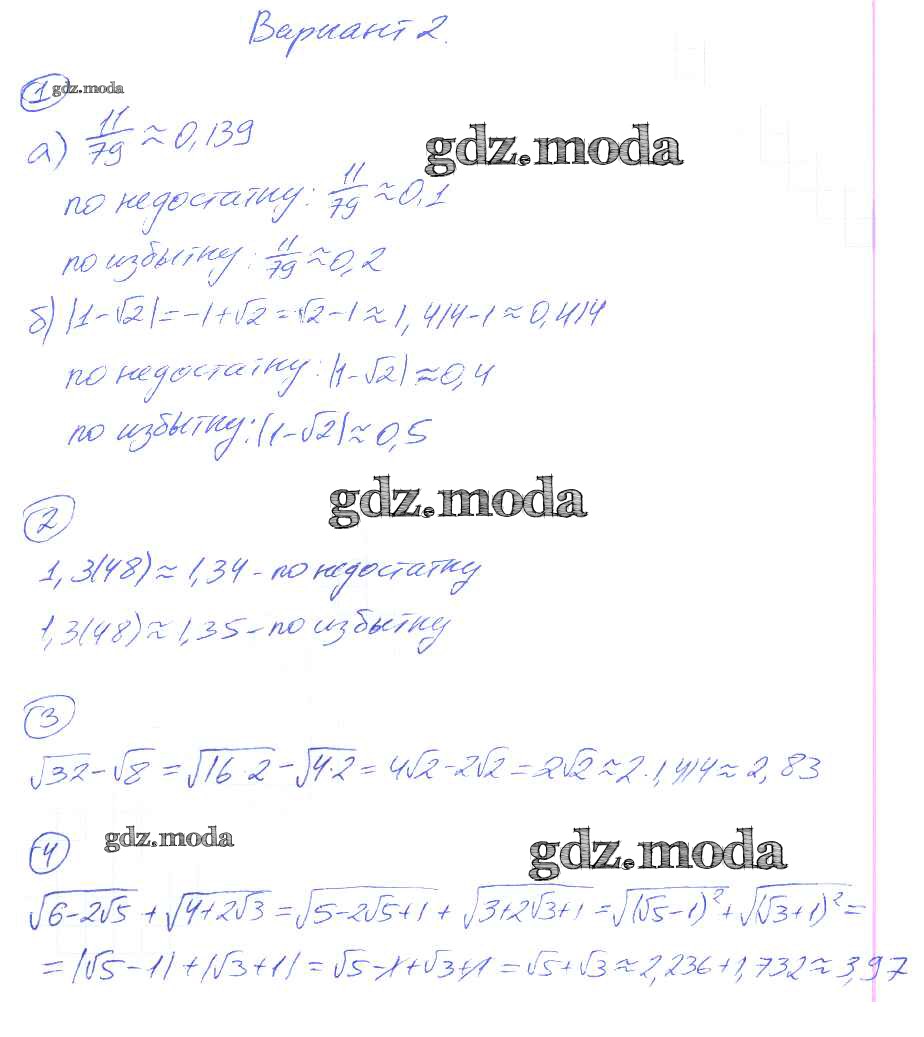 Вариант 2.
1 gdz.moda
а) 11/79 ≈ 0,139
gdz.moda
по недостатку: 11/79 ≈ 0,1
по избытку: 11/79 ≈ 0,2
б) |1-√2| = -1+√2 = √2-1 ≈ 1,414-1 ≈ 0,414
по недостатку: |1-√2| ≈ 0,4
по избытку: |1-√2| ≈ 0,5
gdz.moda
2
1,3(48) ≈ 1,34 - по недостатку
1,3(48) ≈ 1,35 - по избытку
3
√32 - √8 = √16·2 - √4·2 = 4√2 - 2√2 = 2√2 ≈ 2·1,414 ≈ 2,83
4 gdz.moda
gdz.moda
√6-2√5 + √4+2√3 = √5-2√5+1 + √3+2√3+1 = √(√5-1)² + √(√3+1)² =
= |√5-1| + |√3+1| = √5-1+√3+1 = √5+√3 ≈ 2,236+1,732 ≈ 3,97